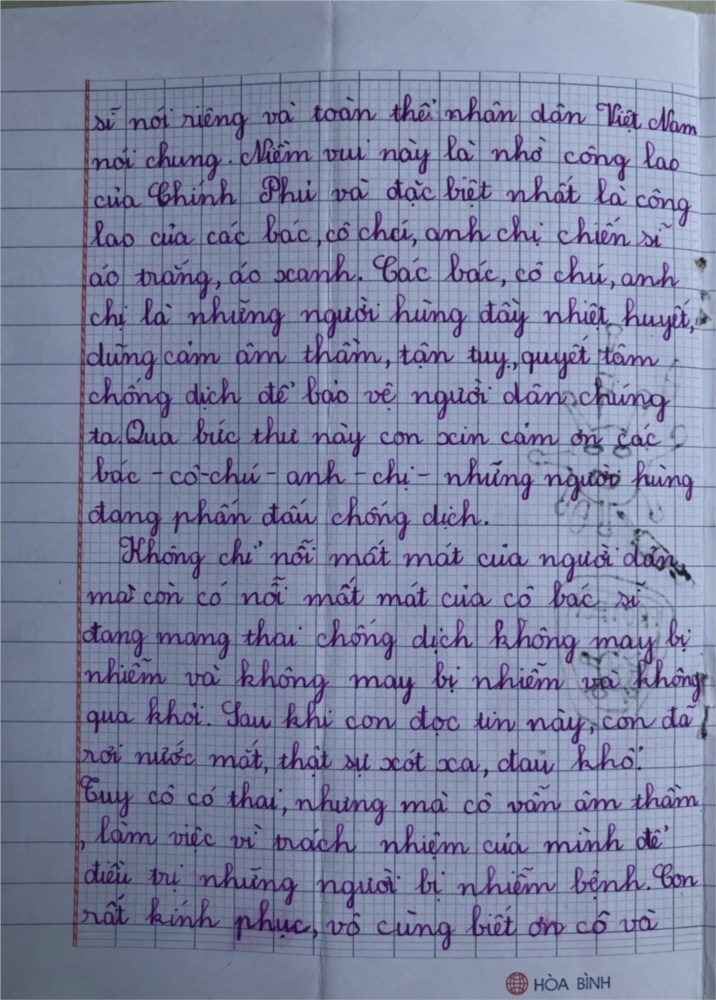 sĩ nói riêng và toàn thể nhân dân Việt Nam
nói chung. Niềm vui này là nhờ công lao
của Chính Phủ và đặc biệt nhất là công
lao của các bác, cô chú, anh chị chiến sĩ
áo trắng, áo xanh. Các bác, cô chú, anh
chị là những người hùng đầy nhiệt huyết,
dũng cảm âm thầm, tận tuỵ, quyết tâm
chống dịch để bảo vệ người dân chúng
ta. Qua bức thư này con xin cảm ơn các
bác - cô - chú - anh - chị - những người hùng
đang phấn đấu chống dịch.
Không chỉ nỗi mất mát của người dân
mà còn có nỗi mất mát của cô bác sĩ
đang mang thai chống dịch không may bị
nhiễm và không may bị nhiễm và không
qua khỏi. Sau khi con đọc tin này, con đã
rơi nước mắt, thật sự xót xa, đau khổ.
Tuy cô có thai, nhưng mà cô vẫn âm thầm
, làm việc vì trách nhiệm của mình để
điều trị những người bị nhiễm bệnh. Con
rất kính phục, vô cùng biết ơn cô và
HÒA BÌNH